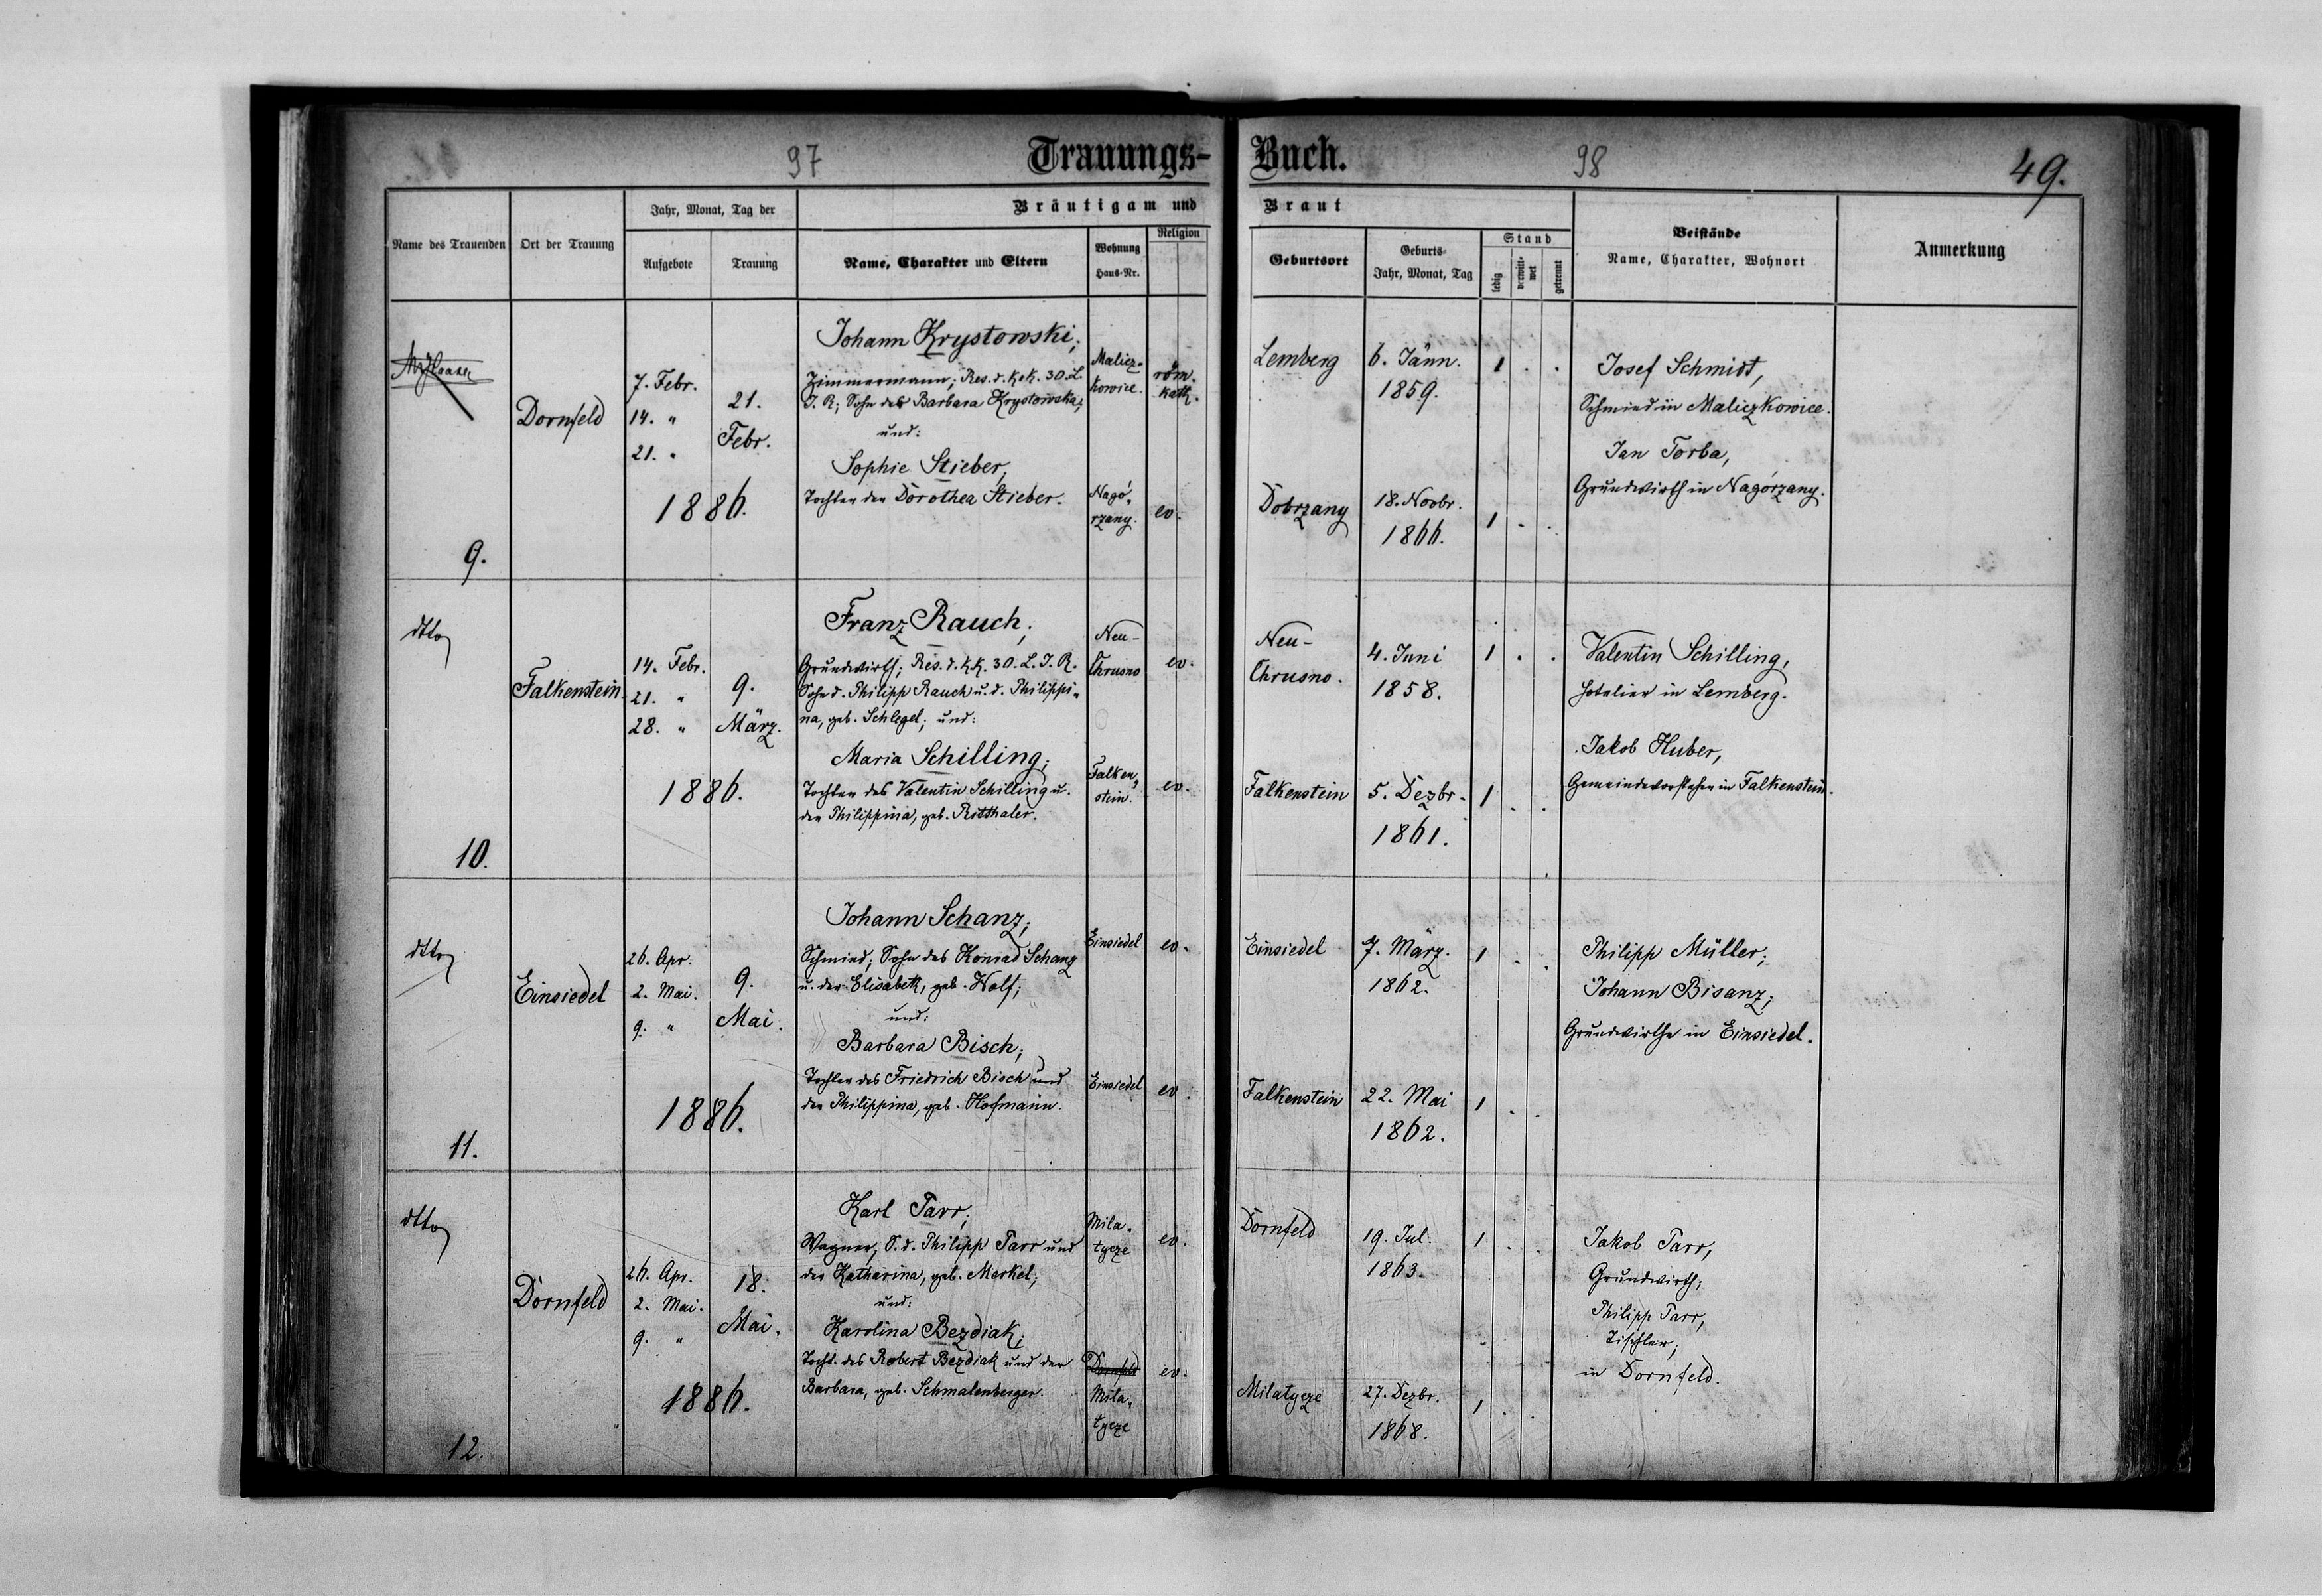 97
Trauungs-
Buch.
98
49.
Name des Trauenden
Ort der Trauung
Jahr, Monat, Tag der
Aufgebote
Trauung
Bräutigam und
Braut
Name, Charakter und Eltern
Wohnung
Haus-Nr.
Religion
Geburtsort
Geburts-
Jahr, Monat, Tag
Stand
ledig
verwitt-
wet
getrennt
Beistände
Name, Charakter, Wohnort
Anmerkung
9.
Dornfeld
7. Febr.
14. "
21. "
21.
Febr.
1886.
Johann Krystowski;
Zimmermann; Res. d. k.k. 30. L.
I. R.; Sohn der Barbara Krystowska;
und:
Sophie Stieber,
Tochter der Dorothea Stieber.
Malicz-
kowice.
röm.
kath.
Nagó-
rzany.
ev.
Lemberg
6. Jänn.
1859.
1 . .
Dobrzany
18. Novbr.
1866.
1 . .
Josef Schmidt,
Schmied in Maliczkowice.
Jan Torba,
Grundwirth in Nagórzany.
dtto
10.
Falkenstein.
14. Febr.
21. "
28. "
9.
März.
1886.
Franz Rauch;
Grundwirth; Res. d. k.k. 30. L. I. R.
Sohn d. Philipp Rauch u. d. Philippi-
na, geb. Schlegel; und:
Maria Schilling;
Tochter des Valentin Schilling u.
der Philippina, geb. Ritthaler.
Neu-
Chrusno
ev.
Falken-
stein.
ev.
Neu-
Chrusno.
4. Juni
1858.
1 . .
Falkenstein
5. Dezbr.
1861.
1 . .
Valentin Schilling,
Hotelier in Lemberg.
Jakob Huber,
Gemeindevorsteher in Falkenstein.
dtto
11.
Einsiedel
26. Apr.
2. Mai.
9. "
9.
Mai.
1886.
Johann Schanz;
Schmied; Sohn des Konrad Schanz
u. der Elisabeth, geb. Wolf;
und:
Barbara Bisch;
Tochter des Friedrich Bisch und
der Philippina, geb. Hofmann.
Einsiedel
ev.
Einsiedel
ev.
Einsiedel
7. März.
1862.
1 . .
Falkenstein
22. Mai
1862.
1 . .
Philipp Müller;
Johann Bisanz;
Grundwirthe in Einsiedel.
dtto
12.
Dornfeld
26. Apr.
2. Mai.
9. "
18.
Mai.
1886.
Karl Parr;
Wagner, S. d. Philipp Parr und
der Katharina, geb. Merkel;
und:
Karolina Bezdiak;
Tocht. des Robert Bezdiak und der
Barbara, geb. Schmalenberger.
Mila-
tycze
ev.
Dornfeld
Mila-
tycze
ev.
Dornfeld
19. Jul.
1863.
1 . .
Milatycze
27. Dezbr.
1868.
1 . .
Jakob Parr,
Grundwirth;
Philipp Parr,
Tischler;
in Dornfeld.